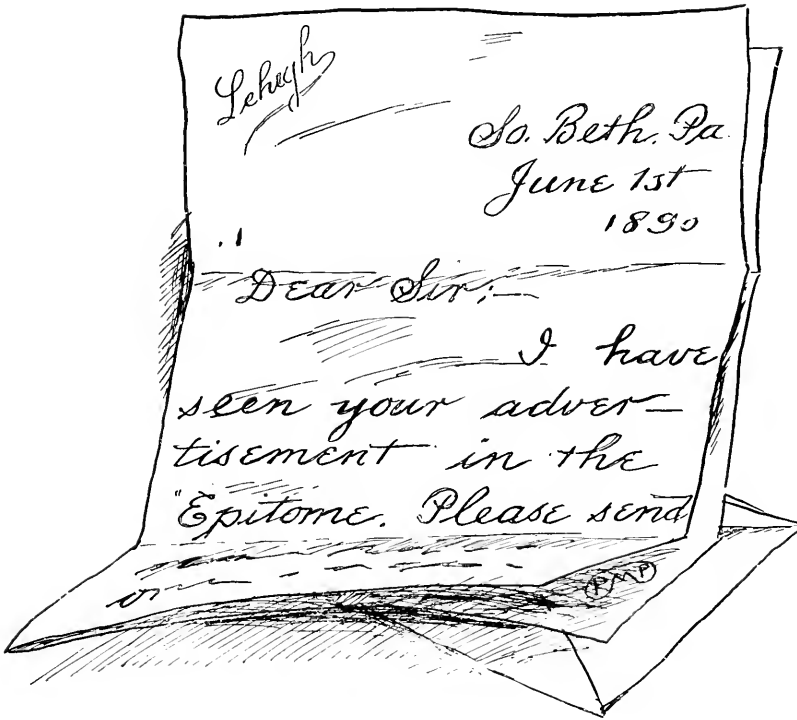 Lehigh
So. Beth. Pa.
June 1st
1890
Dear Sir:—
I have
seen your adver-
tisement in the
"Epitome. Please send
PMP